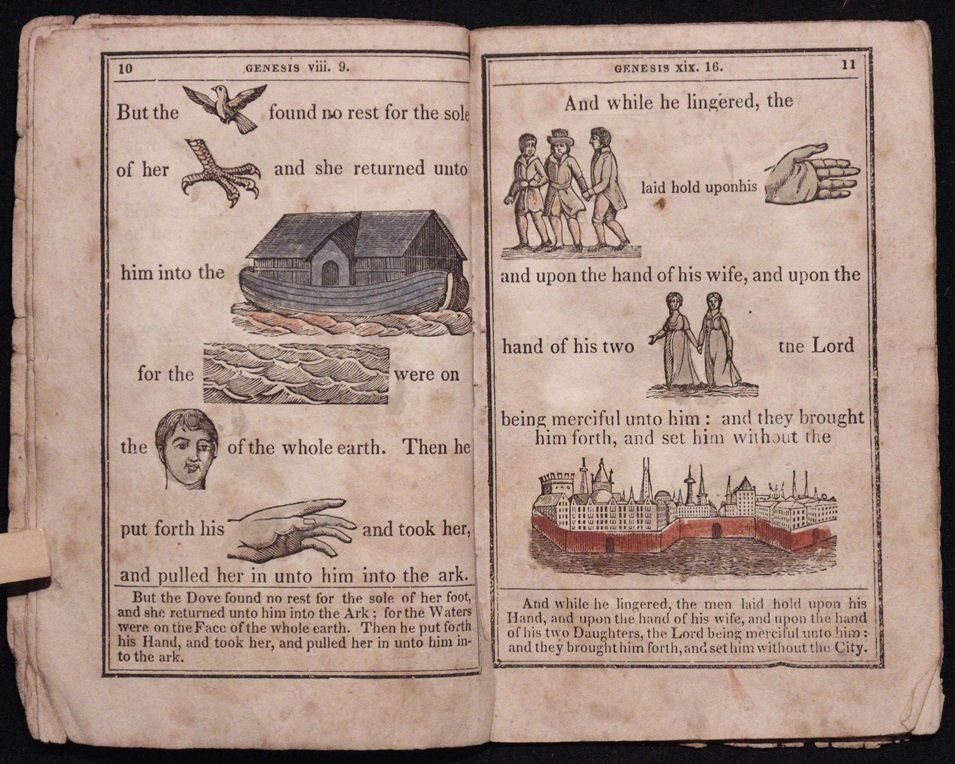 10 GENESIS viii. 9.
But the found no rest for the sole
of her and she returned unto
him into the
for the were on
the of the whole earth. Then he
put forth his and took her,
and pulled her in unto him into the ark.
But the Dove found no rest for the sole of her foot,
and she returned unto him into the Ark: for the Waters
were on the Face of the whole earth. Then he put forth
his Hand, and took her, and pulled her in unto him in-
to the ark.
GENESIS xix. 16. 11
And while he lingered, the
laid hold uponhis
and upon the hand of his wife, and upon the
hand of his two tne Lord
being merciful unto him: and they brought
him forth, and set him without the
And while he lingered, the men laid hold upon his
Hand, and upon the hand of his wife, and upon the hand
of his two Daughters, the Lord being merciful unto him:
and they brought him forth, and set him without the City.